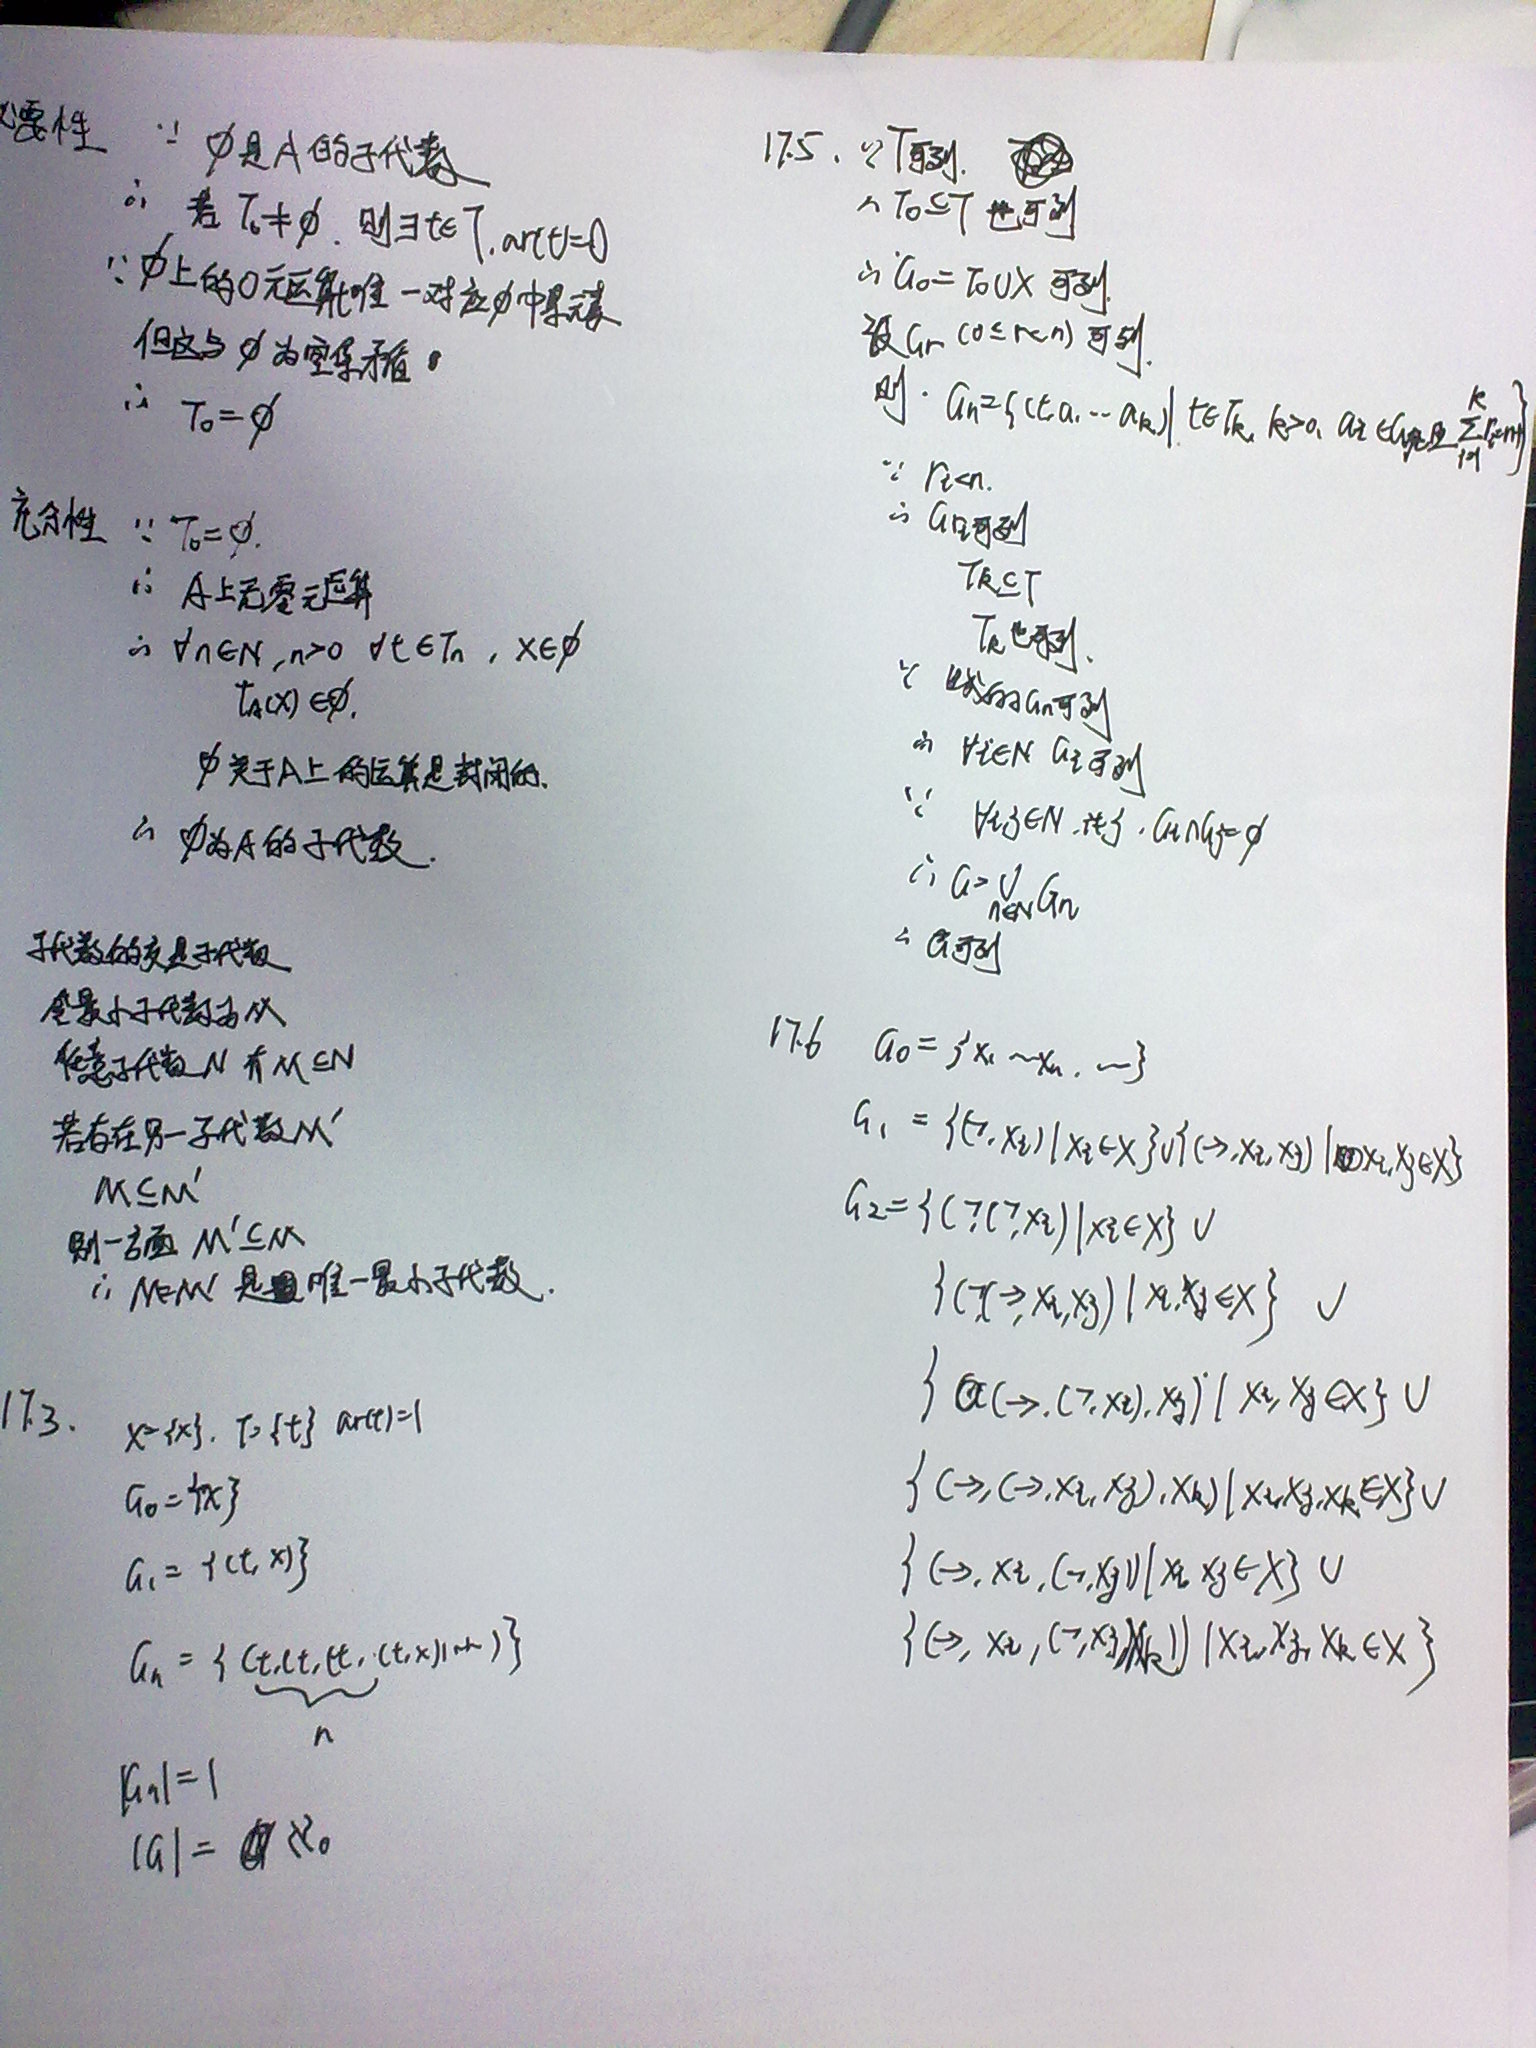 必要性 ∵ ∅是A的子代数
∴ 若 T₀≠∅. 则∃t∈T, ar(t)=0
∵ ∅上的0元运算t唯一对应∅中某元素
但这与∅为空集矛盾.
∴ T₀=∅
充分性 ∵ T₀=∅.
∴ A上无零元运算
∴ ∀n∈N, n>0 ∀t∈Tₙ, x∈∅
t_A(x)∈∅.
∅关于A上的运算是封闭的.
∴ ∅为A的子代数.
子代数的交是子代数
全最小子代数为M
任意子代数N 有M⊆N
若存在另一子代数M'
M⊆M'
则一方面 M'⊆M
∴ M=M' 是唯一最小子代数.
17.3. X={x}. T={t} ar(t)=1
G₀={x}
G₁={(t,x)}
Gₙ={(t,(t,(t,(t,x)⋯)}
n
|Gₙ|=1
|G|= ℵ₀
17.5. ∵ T可列.
∴ T₀⊆T 也可列
∴ G₀=T₀∪X 可列.
设Gᵣ (0≤r<n) 可列.
则. Gₙ={(t,a₁⋯aₖ)| t∈Tₖ, k>0, aᵢ∈G 且
∵ rᵢ<n.
∴ Gᵣᵢ可列
Tₖ⊆T
Tₖ也可列.
∵ Gₙ可列
∴ ∀i∈N Gᵢ可列
∵ ∀i,j∈N, i≠j, Gᵢ∩Gⱼ=∅
∴ G=∪Gₙ
n∈N
∴ G可列
17.6 G₀={x₁ ~xₙ. ~}
G₁={(¬,xᵢ)|xᵢ∈X}∪{(→,xᵢ,xⱼ)|xᵢ,xⱼ∈X}
G₂={(¬,(¬,xᵢ)|xᵢ∈X}∪
{(¬(→,xᵢ,xⱼ)|xᵢ,xⱼ∈X} ∪
{(→,(¬,xᵢ),xⱼ)|xᵢ,xⱼ∈X}∪
{(→,(→,xᵢ,xⱼ),xₖ)|xᵢ,xⱼ,xₖ∈X}∪
{(→,xᵢ,(¬,xⱼ))|xᵢ xⱼ∈X}∪
{(→,xᵢ,(→,xⱼ,xₖ))|xᵢ,xⱼ,xₖ∈X}